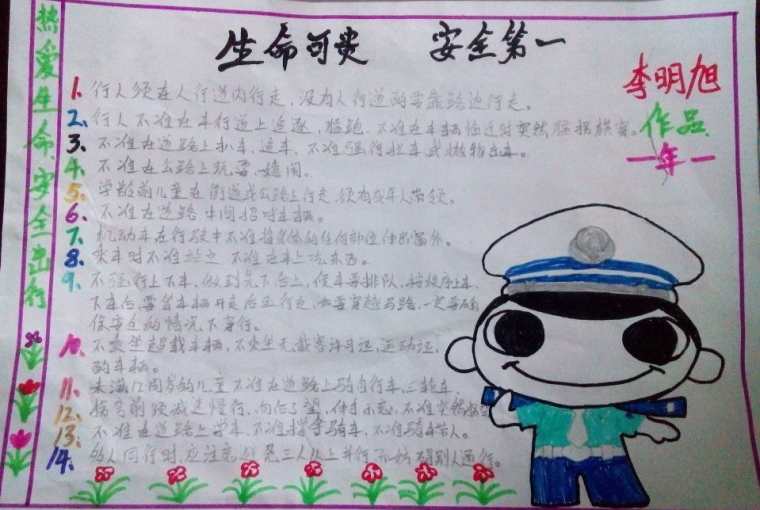 生命可贵 安全第一
热爱生命 安全出行
李明旭
作品
一年一
1. 行人须在人行道内行走，没有人行道的要靠路边行走。
2. 行人不准在车行道上追逐，猛跑，不准在车辆临近时突然猛拐横穿。
3. 不准在道路上扒车，追车，不准强行拦车或抛物击车。
4. 不准在公路上玩耍、嬉闹。
5. 学龄前儿童在街道或公路上行走，须有成年人带领。
6. 不准在道路中间招呼车辆。
7. 机动车在行驶中不准将身体的任何部位伸出窗外。
8. 乘车时不准站立，不准在车上吃东西。
9. 不强行上下车，做到先下后上，候车要排队，按秩序上车，
下车后要等车辆开走后再行走，如要穿越马路，一定要确
保安全的情况下穿行。
10. 不乘坐超载车辆，不乘坐无载客许可证，运动证，
的车辆。
11. 未满12周岁的儿童不准在道路上骑自行车，三轮车，
12. 拐弯前须减速慢行，向后了望，伸手示意，不准突然
13. 不准在道路上学车，不准撑伞骑车，不准骑车带人。
14. 多人同行时应注意，三人以上并行 别人通行。